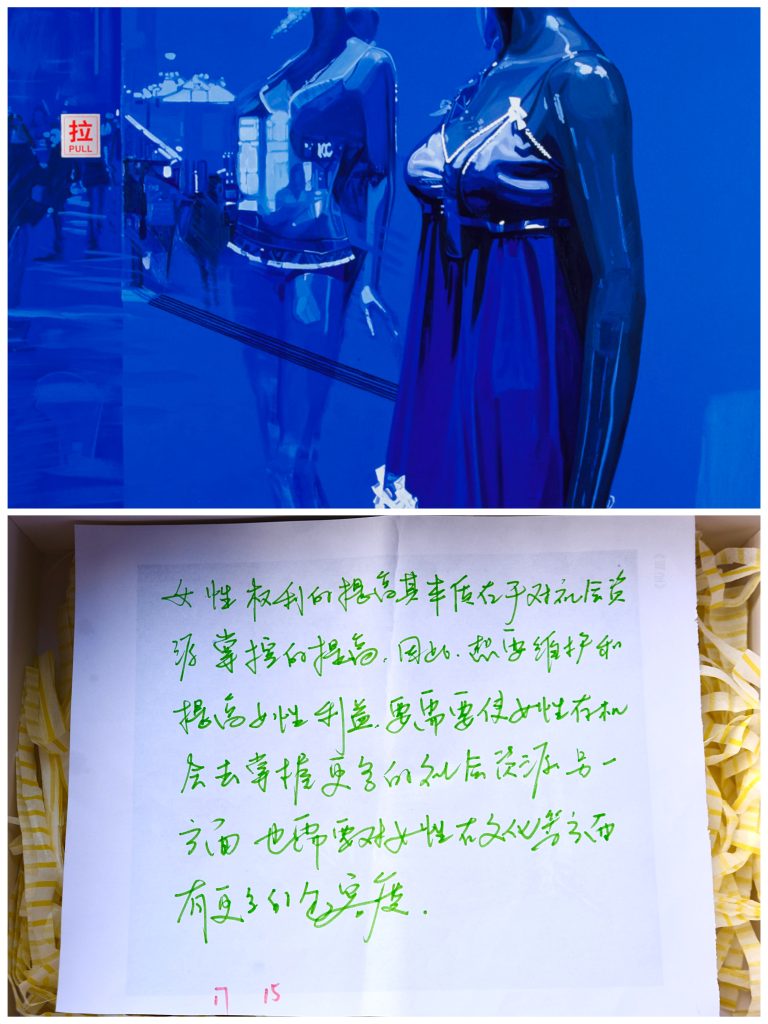 拉
PULL
女性权利的提高其本质在于对社会资
源掌控的提高.因此.想要维护和
提高女性利益.要需要使女性有机
会去掌握更多的社会资源.另一
方面 也需要对女性在文化等方面
有更多的包容度.
17 15